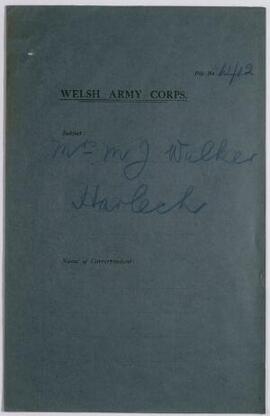 File No. 1412
WELSH ARMY CORPS.
Subject:
Mr M J Walker
Harlech
Name of Correspondent: